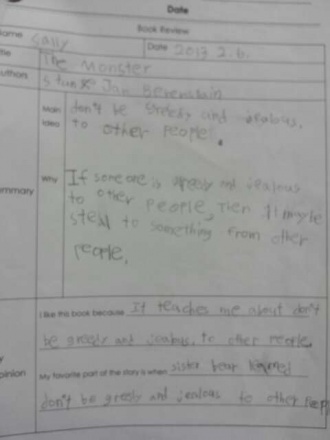 Date
Book Review
Name Sally Date 2013 2.6.
Title The Monster
Authors Stan & Jan Berenstain
Main Idea don't be greedy and jealous,
to other people.
Summary Why If someone is greedy and jealous
to other people, Then
steal to something from other
people.
I like this book because It teaches me about don't
be greedy and jealous, to other people,
opinion My favorite part of the story is when sister bear learned
don't be greedy and jealous to other peop